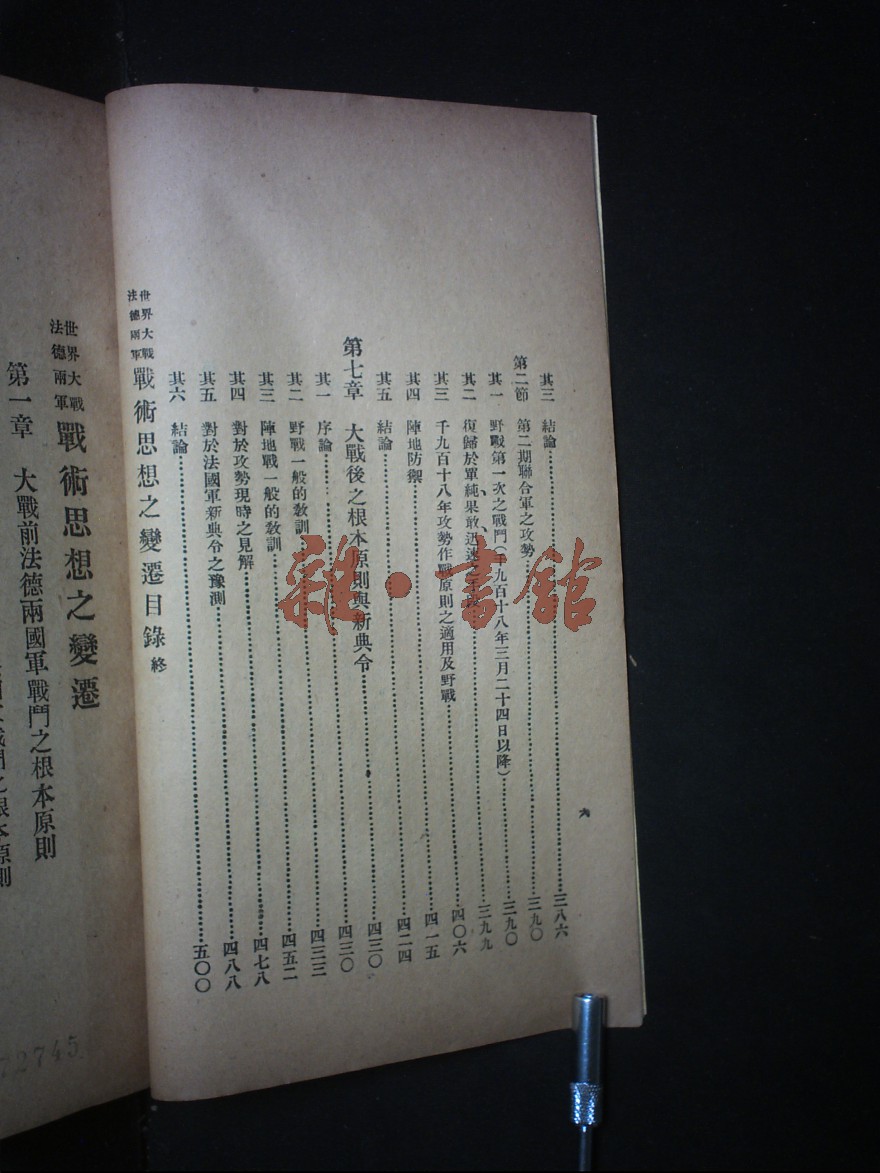 其三　結論……三八六
第二節　第二期聯合軍之攻勢……三九〇
其一　野戰第一次之戰鬥（千九百十八年三月二十四日以降）……三九〇
其二　復歸於單純、果敢、迅速之手段……三九九
其三　千九百十八年攻勢作戰原則之適用及野戰……四〇六
其四　陣地防禦……四一五
其五　結論……四二四
第七章　大戰後之根本原則與新典令……四三〇
其一　序論……四三〇
其二　野戰一般的教訓……四三三
其三　陣地戰一般的教訓……四五二
其四　對於攻勢現時之見解……四七八
其五　對於法國軍新典令之豫測……四八八
其六　結論……五〇〇
世界大戰法德兩軍　戰術思想之變遷目錄　終
六
世界大戰法德兩軍　戰術思想之變遷
第一章　大戰前法德兩國軍戰鬥之根本原則
戰鬥之根本原則
72745
雜·書館